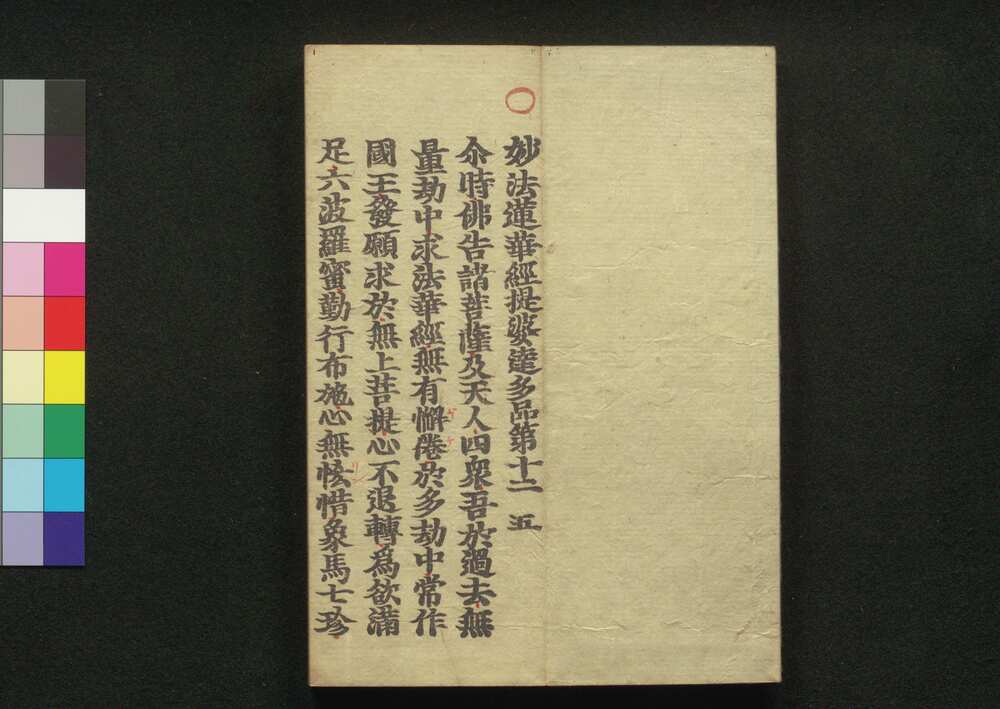 妙法蓮華經提婆達多品第十二 五
尒時佛告諸菩薩及天人四衆吾於過去無
量劫中求法華經無有懈惓於多劫中常作
國王發願求於無上菩提心不退轉爲欲滿
足六波羅蜜勤行布施心無悋惜象馬七珍